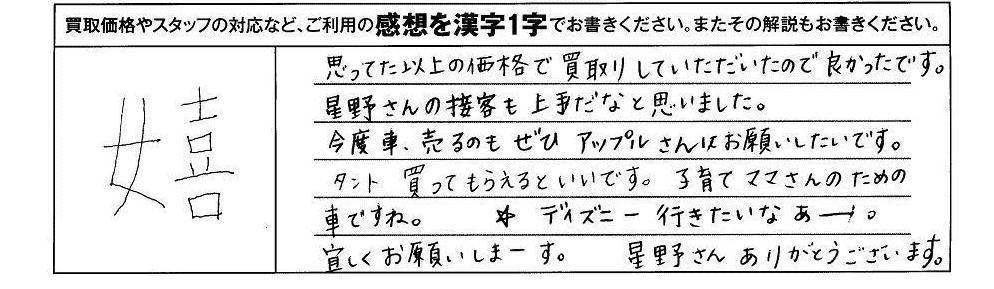 買取価格やスタッフの対応など、ご利用の感想を漢字1字でお書きください。またその解説もお書きください。
嬉
思ってた以上の価格で買取りしていただいたので良かったです。
星野さんの接客も上手だなと思いました。
今度車、売るのもぜひアップルさんにお願いしたいです。
タント買ってもらえるといいです。子育てママさんのための
車ですね。 ☆ ディズニー行きたいなあー。
宜しくお願いしまーす。 星野さんありがとうございます。